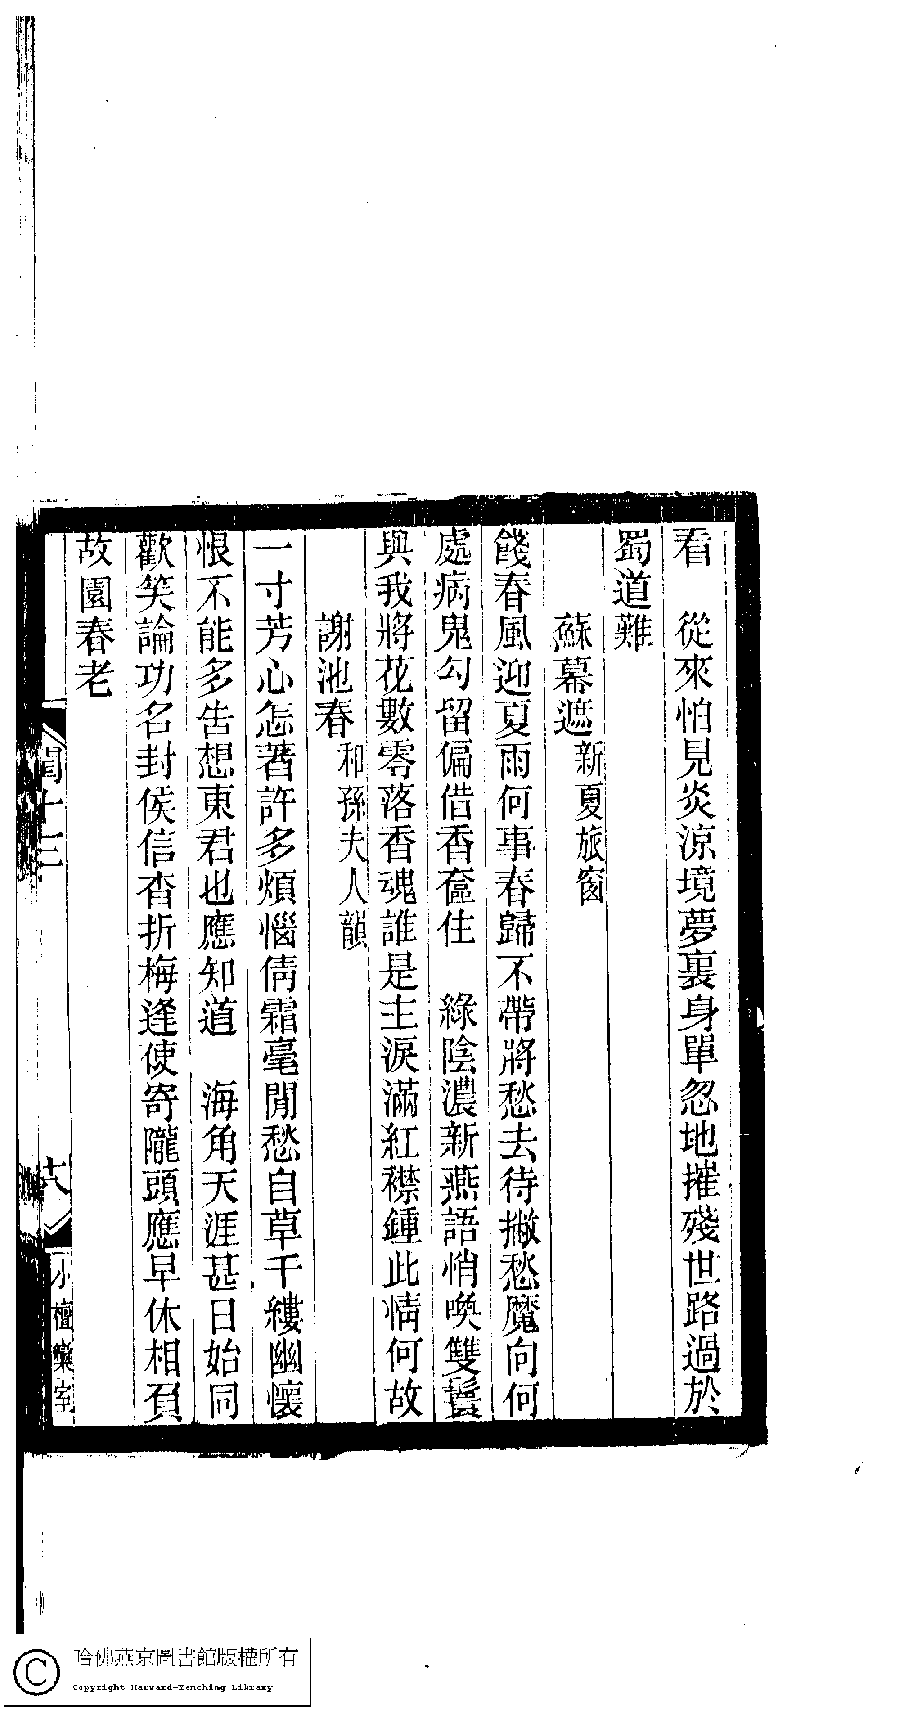 看　從來怕見炎涼境夢裏身單忽地摧殘世路過於
蜀道難
蘇幕遮新夏旅窗
餞春風迎夏雨何事春歸不帶將愁去待撇愁魔向何
處病鬼勾留偏借香奩住　綠陰濃新燕語悄喚雙鬟
與我將花數零落香魂誰是主淚滿紅襟鍾此情何故
謝池春和孫夫人韻
一寸芳心怎著許多煩惱倩霜毫閒愁自草千縷幽懷
恨不能多告想東君也應知道　海角天涯甚日始同
歡笑論功名封侯信杳折梅逢使寄隴頭應早休相負
故園春老
閨十三
十八
小檀欒室
哈佛燕京圖書館版權所有
Copyright Harvard-Yenching Library